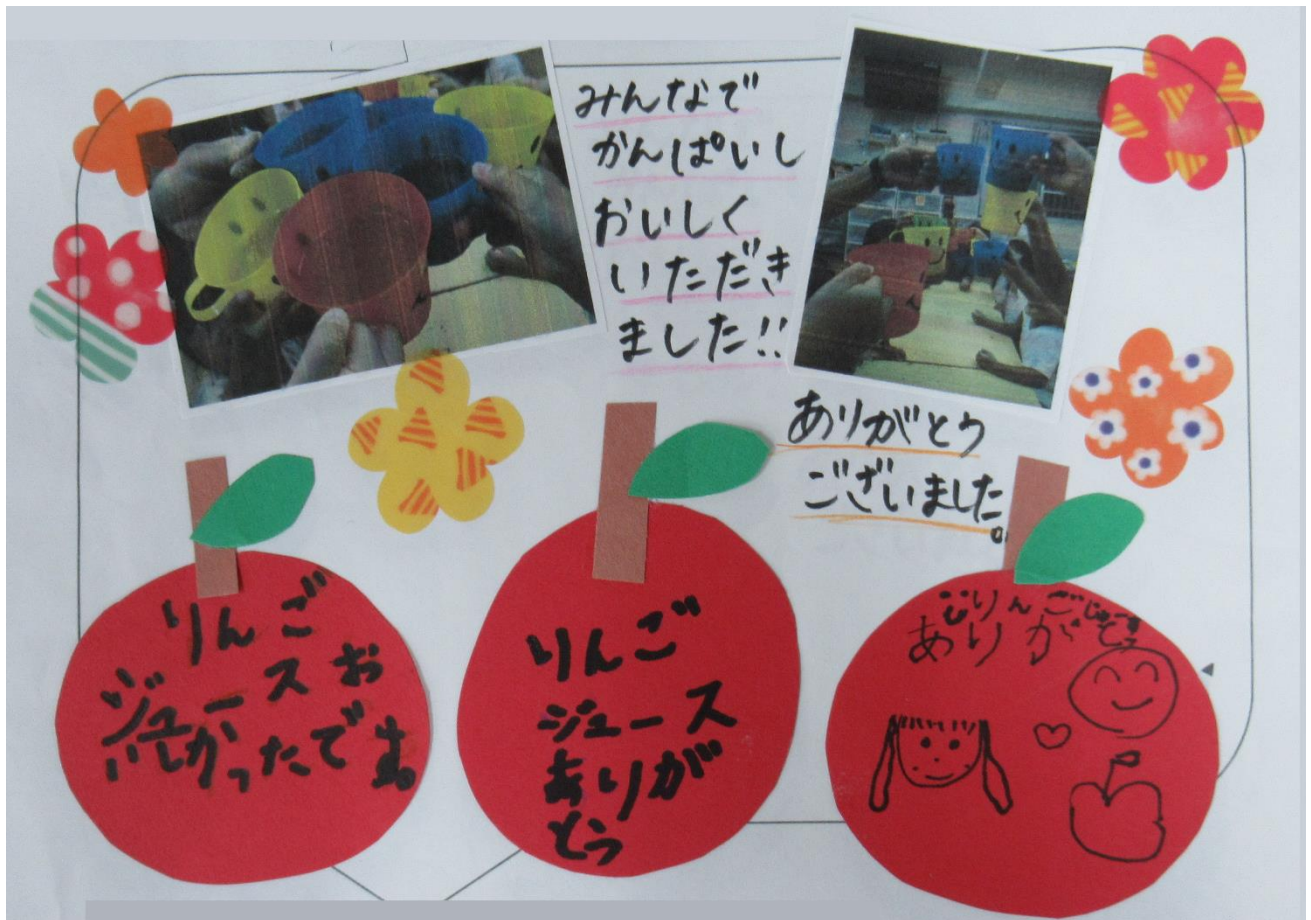 みんなで
かんぱいし
おいしく
いただき
ました!!
ありがとう
ございました。
りんご
ジュースお
いしかったです。
りんご
ジュース
ありが
とう
りんごじゅーす
ありがとう